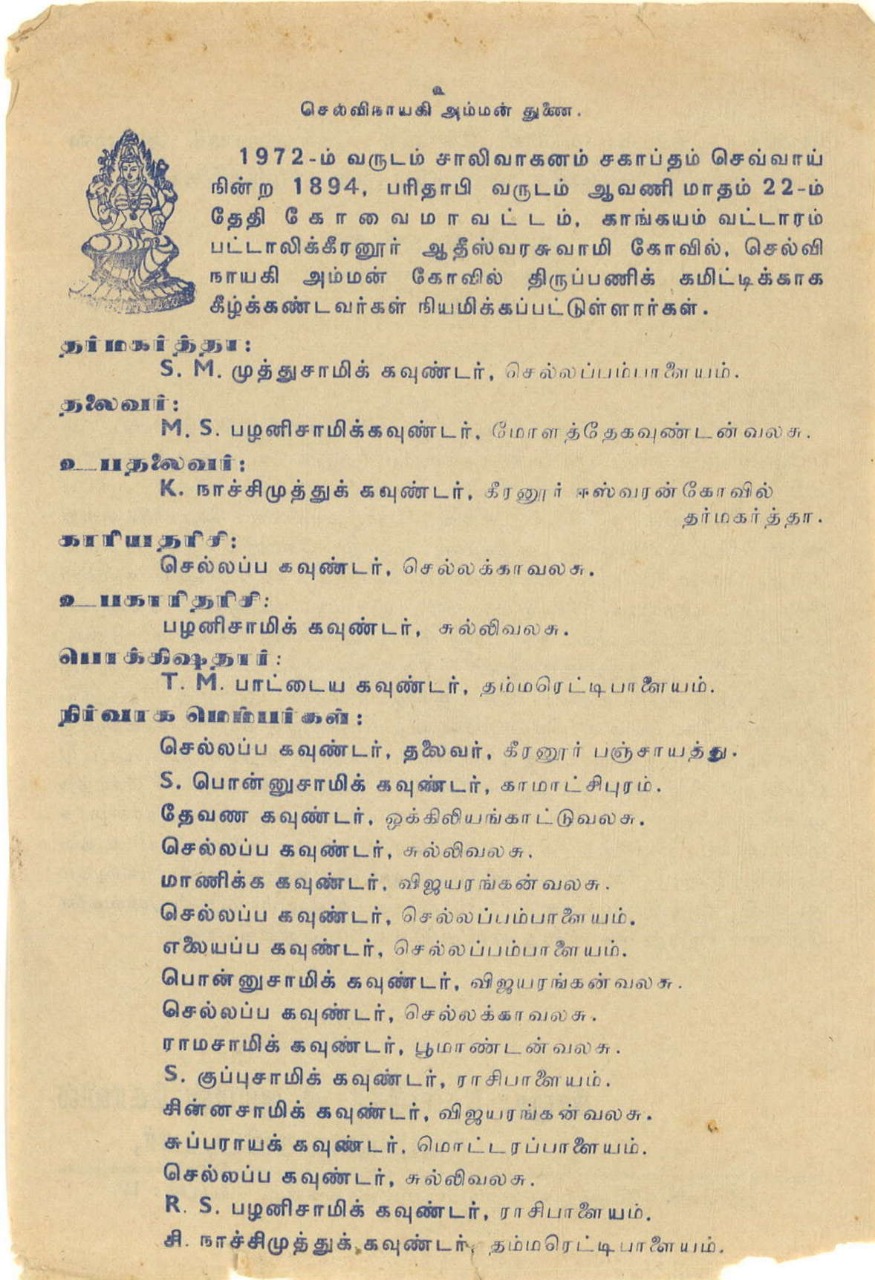 உ
செல்விநாயகி அம்மன் துணை.
1972-ம் வருடம் சாலிவாகனம் சகாப்தம் செவ்வாய்
நின்ற 1894, பரிதாபி வருடம் ஆவணி மாதம் 22-ம்
தேதி கோவைமாவட்டம், காங்கயம் வட்டாரம்
பட்டாலிக்கீரனூர் ஆதீஸ்வரசுவாமி கோவில், செல்வி
நாயகி அம்மன் கோவில் திருப்பணிக் கமிட்டிக்காக
கீழ்க்கண்டவர்கள் நியமிக்கப்பட்டுள்ளார்கள்.
தர்மகர்த்தா:
S. M. முத்துசாமிக் கவுண்டர், செல்லப்பம்பாளையம்.
தலைவர்:
M. S. பழனிசாமிக்கவுண்டர், மோளத்தேகவுண்டன்வலசு.
உபதலைவர்:
K. நாச்சிமுத்துக் கவுண்டர், கீரனூர் ஈஸ்வரன்கோவில்
தர்மகர்த்தா.
காரியாதரிசி:
செல்லப்ப கவுண்டர், செல்லக்காவலசு.
உபகாரிதரிசி:
பழனிசாமிக் கவுண்டர், சுல்லிவலசு.
பொக்கிஷதார்:
T. M. பாட்டைய கவுண்டர், தம்மரெட்டிபாளையம்.
நிர்வாக மெம்பர்கள்:
செல்லப்ப கவுண்டர், தலைவர், கீரனூர் பஞ்சாயத்து.
S. பொன்னுசாமிக் கவுண்டர், காமாட்சிபுரம்.
தேவண கவுண்டர், ஒக்கிலியங்காட்டுவலசு.
செல்லப்ப கவுண்டர், சுல்லிவலசு.
மாணிக்க கவுண்டர், விஜயரங்கன்வலசு.
செல்லப்ப கவுண்டர், செல்லப்பம்பாளையம்.
எலையப்ப கவுண்டர், செல்லப்பம்பாளையம்.
பொன்னுசாமிக் கவுண்டர், விஜயரங்கன்வலசு.
செல்லப்ப கவுண்டர், செல்லக்காவலசு.
ராமசாமிக் கவுண்டர், பூமாண்டன்வலசு.
S. குப்புசாமிக் கவுண்டர், ராசிபாளையம்.
சின்னசாமிக் கவுண்டர், விஜயரங்கன்வலசு.
சுப்பராயக் கவுண்டர், மொட்டரப்பாளையம்.
செல்லப்ப கவுண்டர், சுல்லிவலசு.
R. S. பழனிசாமிக் கவுண்டர், ராசிபாளையம்.
சி. நாச்சிமுத்துக் கவுண்டர், தம்மரெட்டிபாளையம்.